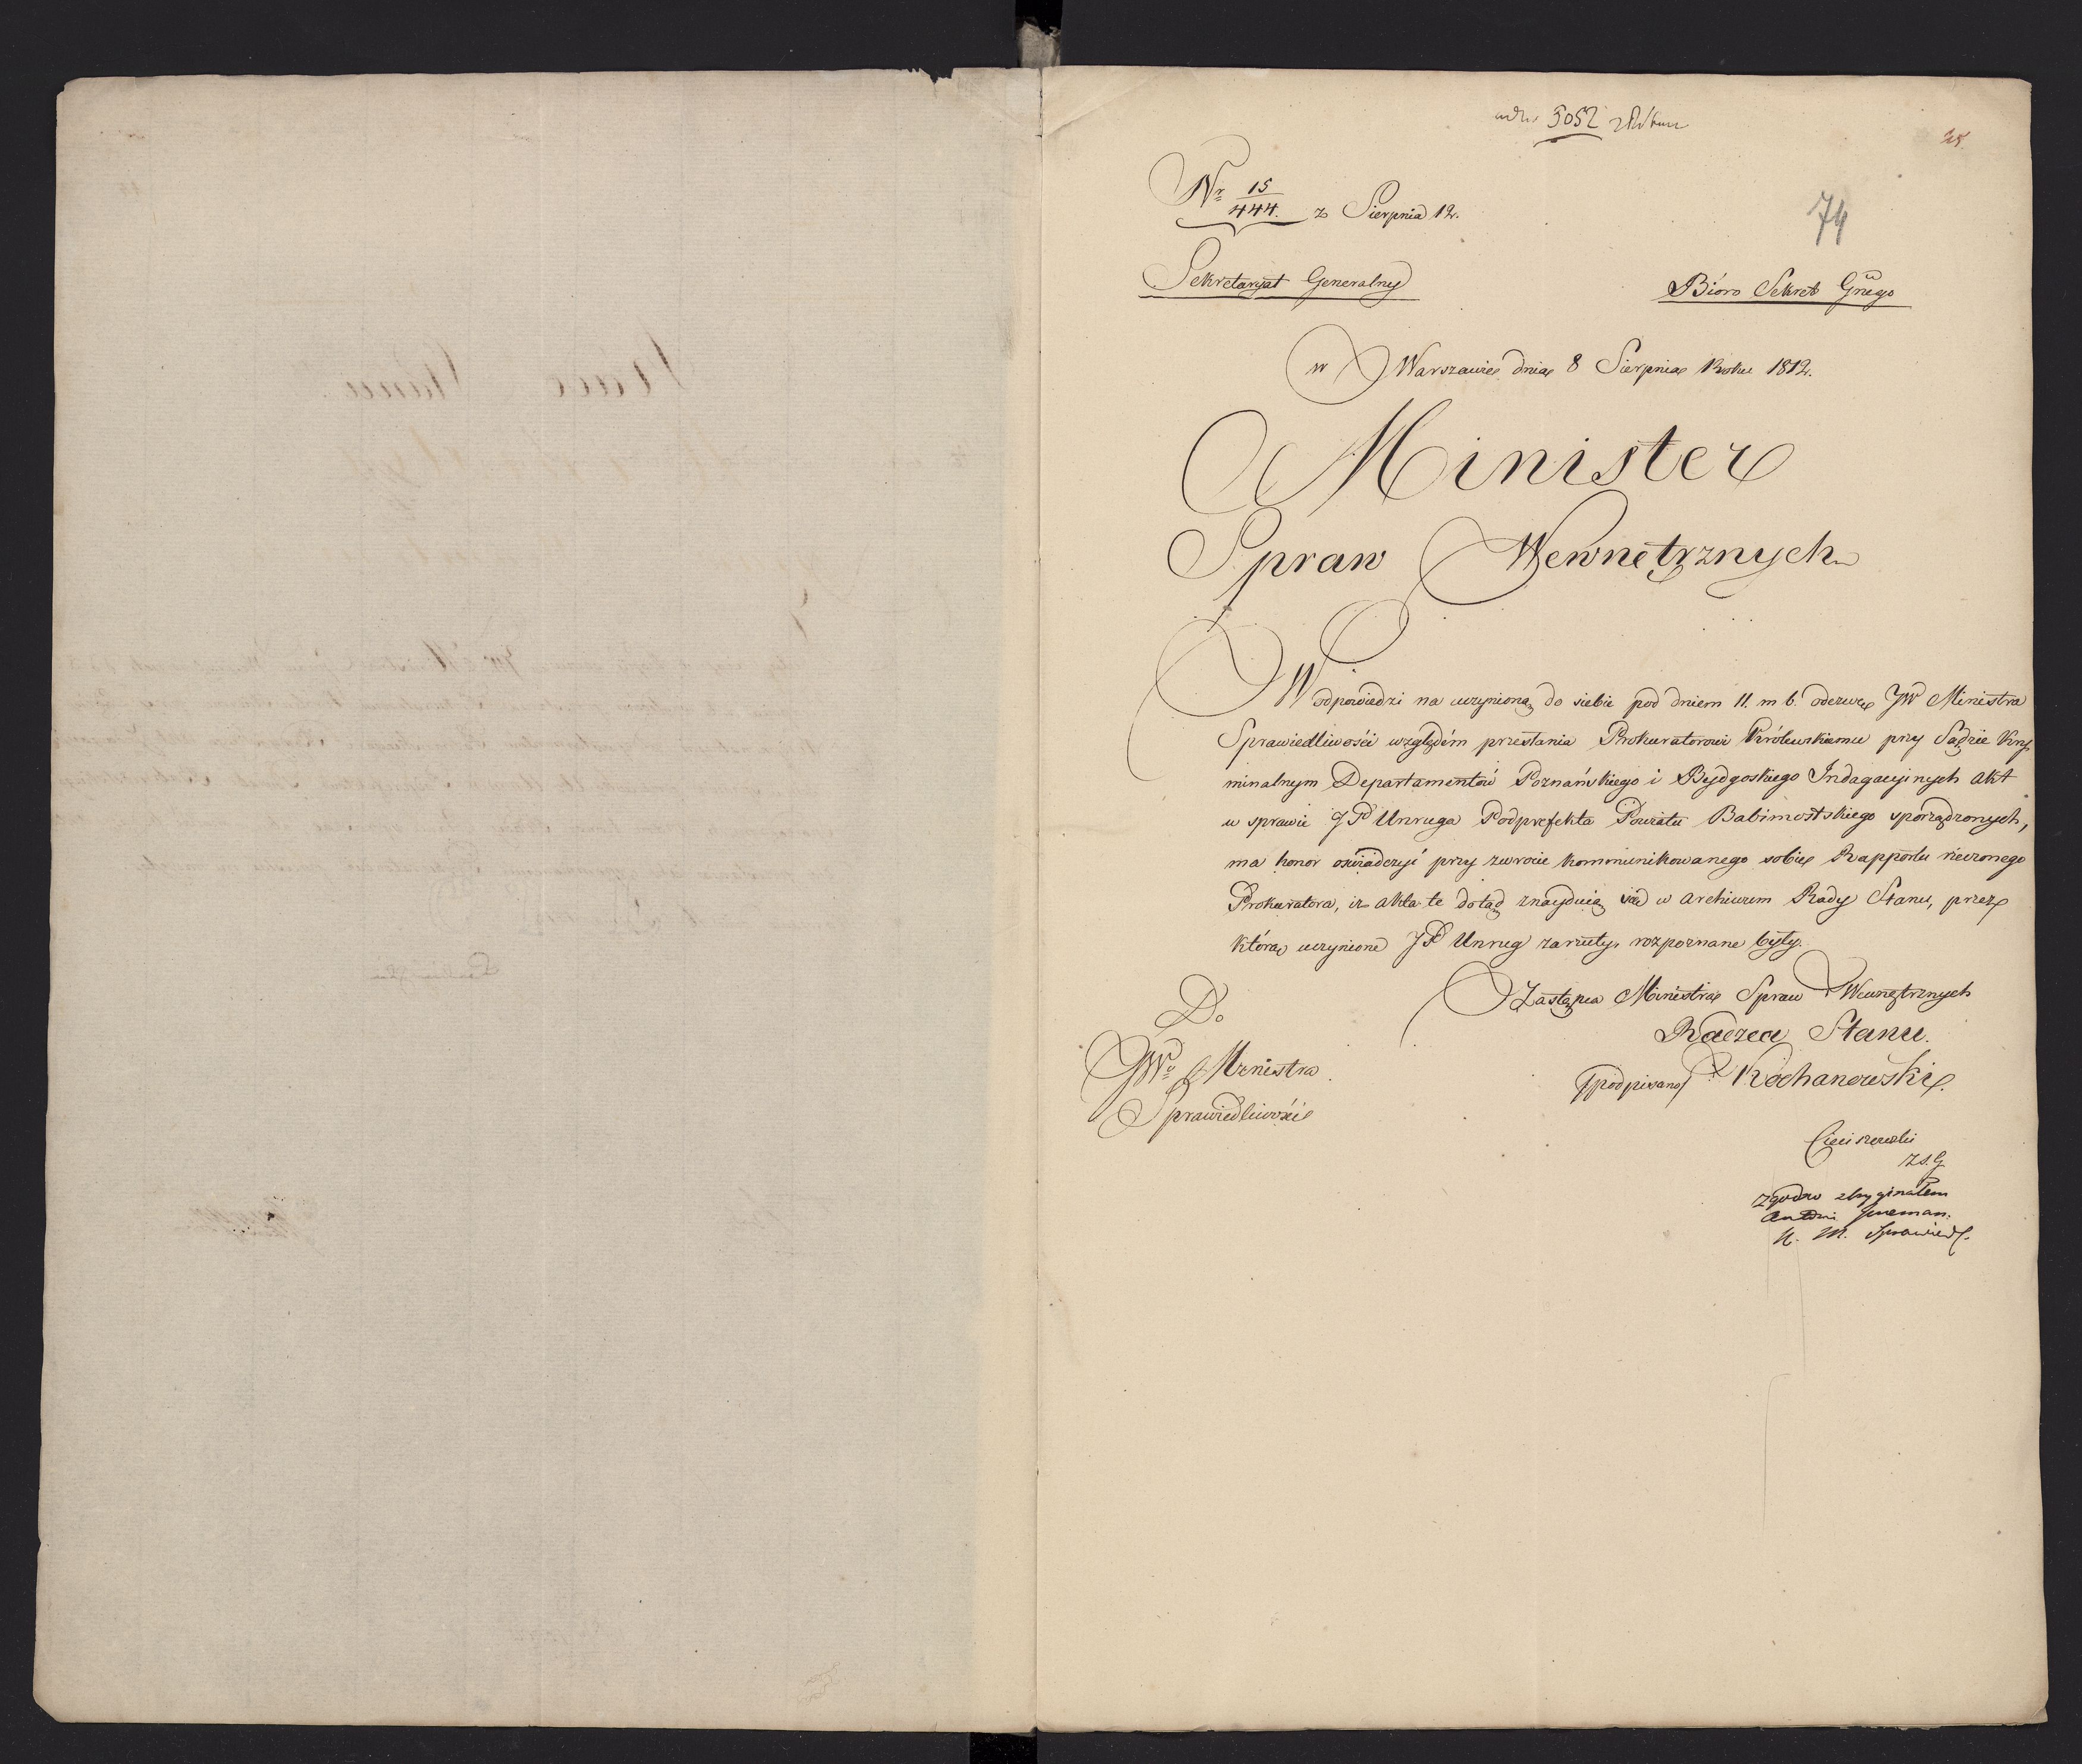 5052
25.
Nr 15/444. z Sierpnia 12.
74
Sekretaryat Generalny
Bióro Sekret Gnego
w Warszawie dnia 8 Sierpnia Roku 1812.
Minister
Spraw Wewnętrznych
W odpowiedzi na uczynioną do siebie pod dniem 11. m b. odezwę JW Ministra
Sprawiedliwości względem przesłania Prokuratorowi Królewskiemu przy Sądzie Kry,
minalnym Departamentów Poznańskiego i Bydgoskiego Indagacyinych Akt
w sprawie JP Unruga Podprefekta Powiatu Babimostskiego sporządzonych,
ma honor oświadczyć przy zwrocie kommunikowanego sobie Rapportu rzeczonego
Prokuratora, iż akta te dotąd znayduią się w Archiwum Rady Stanu, przez
którą uczynione JP Unrug zarzuty rozpoznane były.
Zastępca Ministra Spraw Wewnętrznych
Radzca Stanu.
(podpisano) Kochanowski.
Do
JWo Ministra
Sprawiedliwości
Cieciszewski
Z.S.G
Zgodno z Oryginałem
Antoni
M. Sprawiedl.